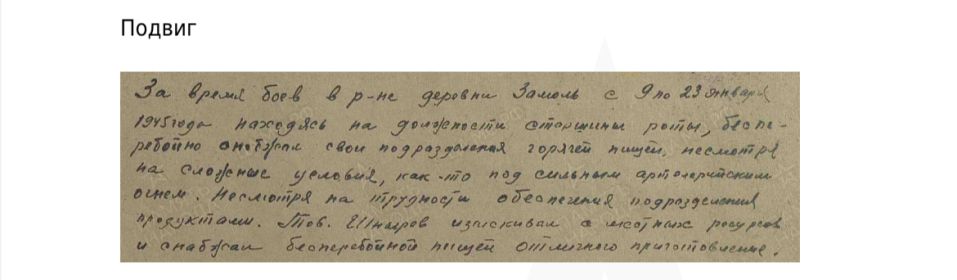 Подвиг
За время боев в р-не деревни Замоль с 9 по 23 января
1945 года находясь на должности старшины роты, беспе-
ребойно снабжал свои подразделения горячей пищей, несмотря
на сложные условия, как-то под сильным артолеритским
огнем. Несмотря на трудности обеспечения подразделения
продуктами. Тов. Шныров изыскивал с местных ресурсов
и снабжал бесперебойной пищей отличного приготовление.